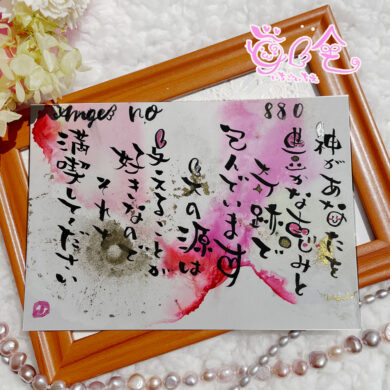 Anges no 880
神があなたを
豊かな恵みと
奇跡で
包んでいます
の源は
与えることが
好きなので
それを
満喫してください